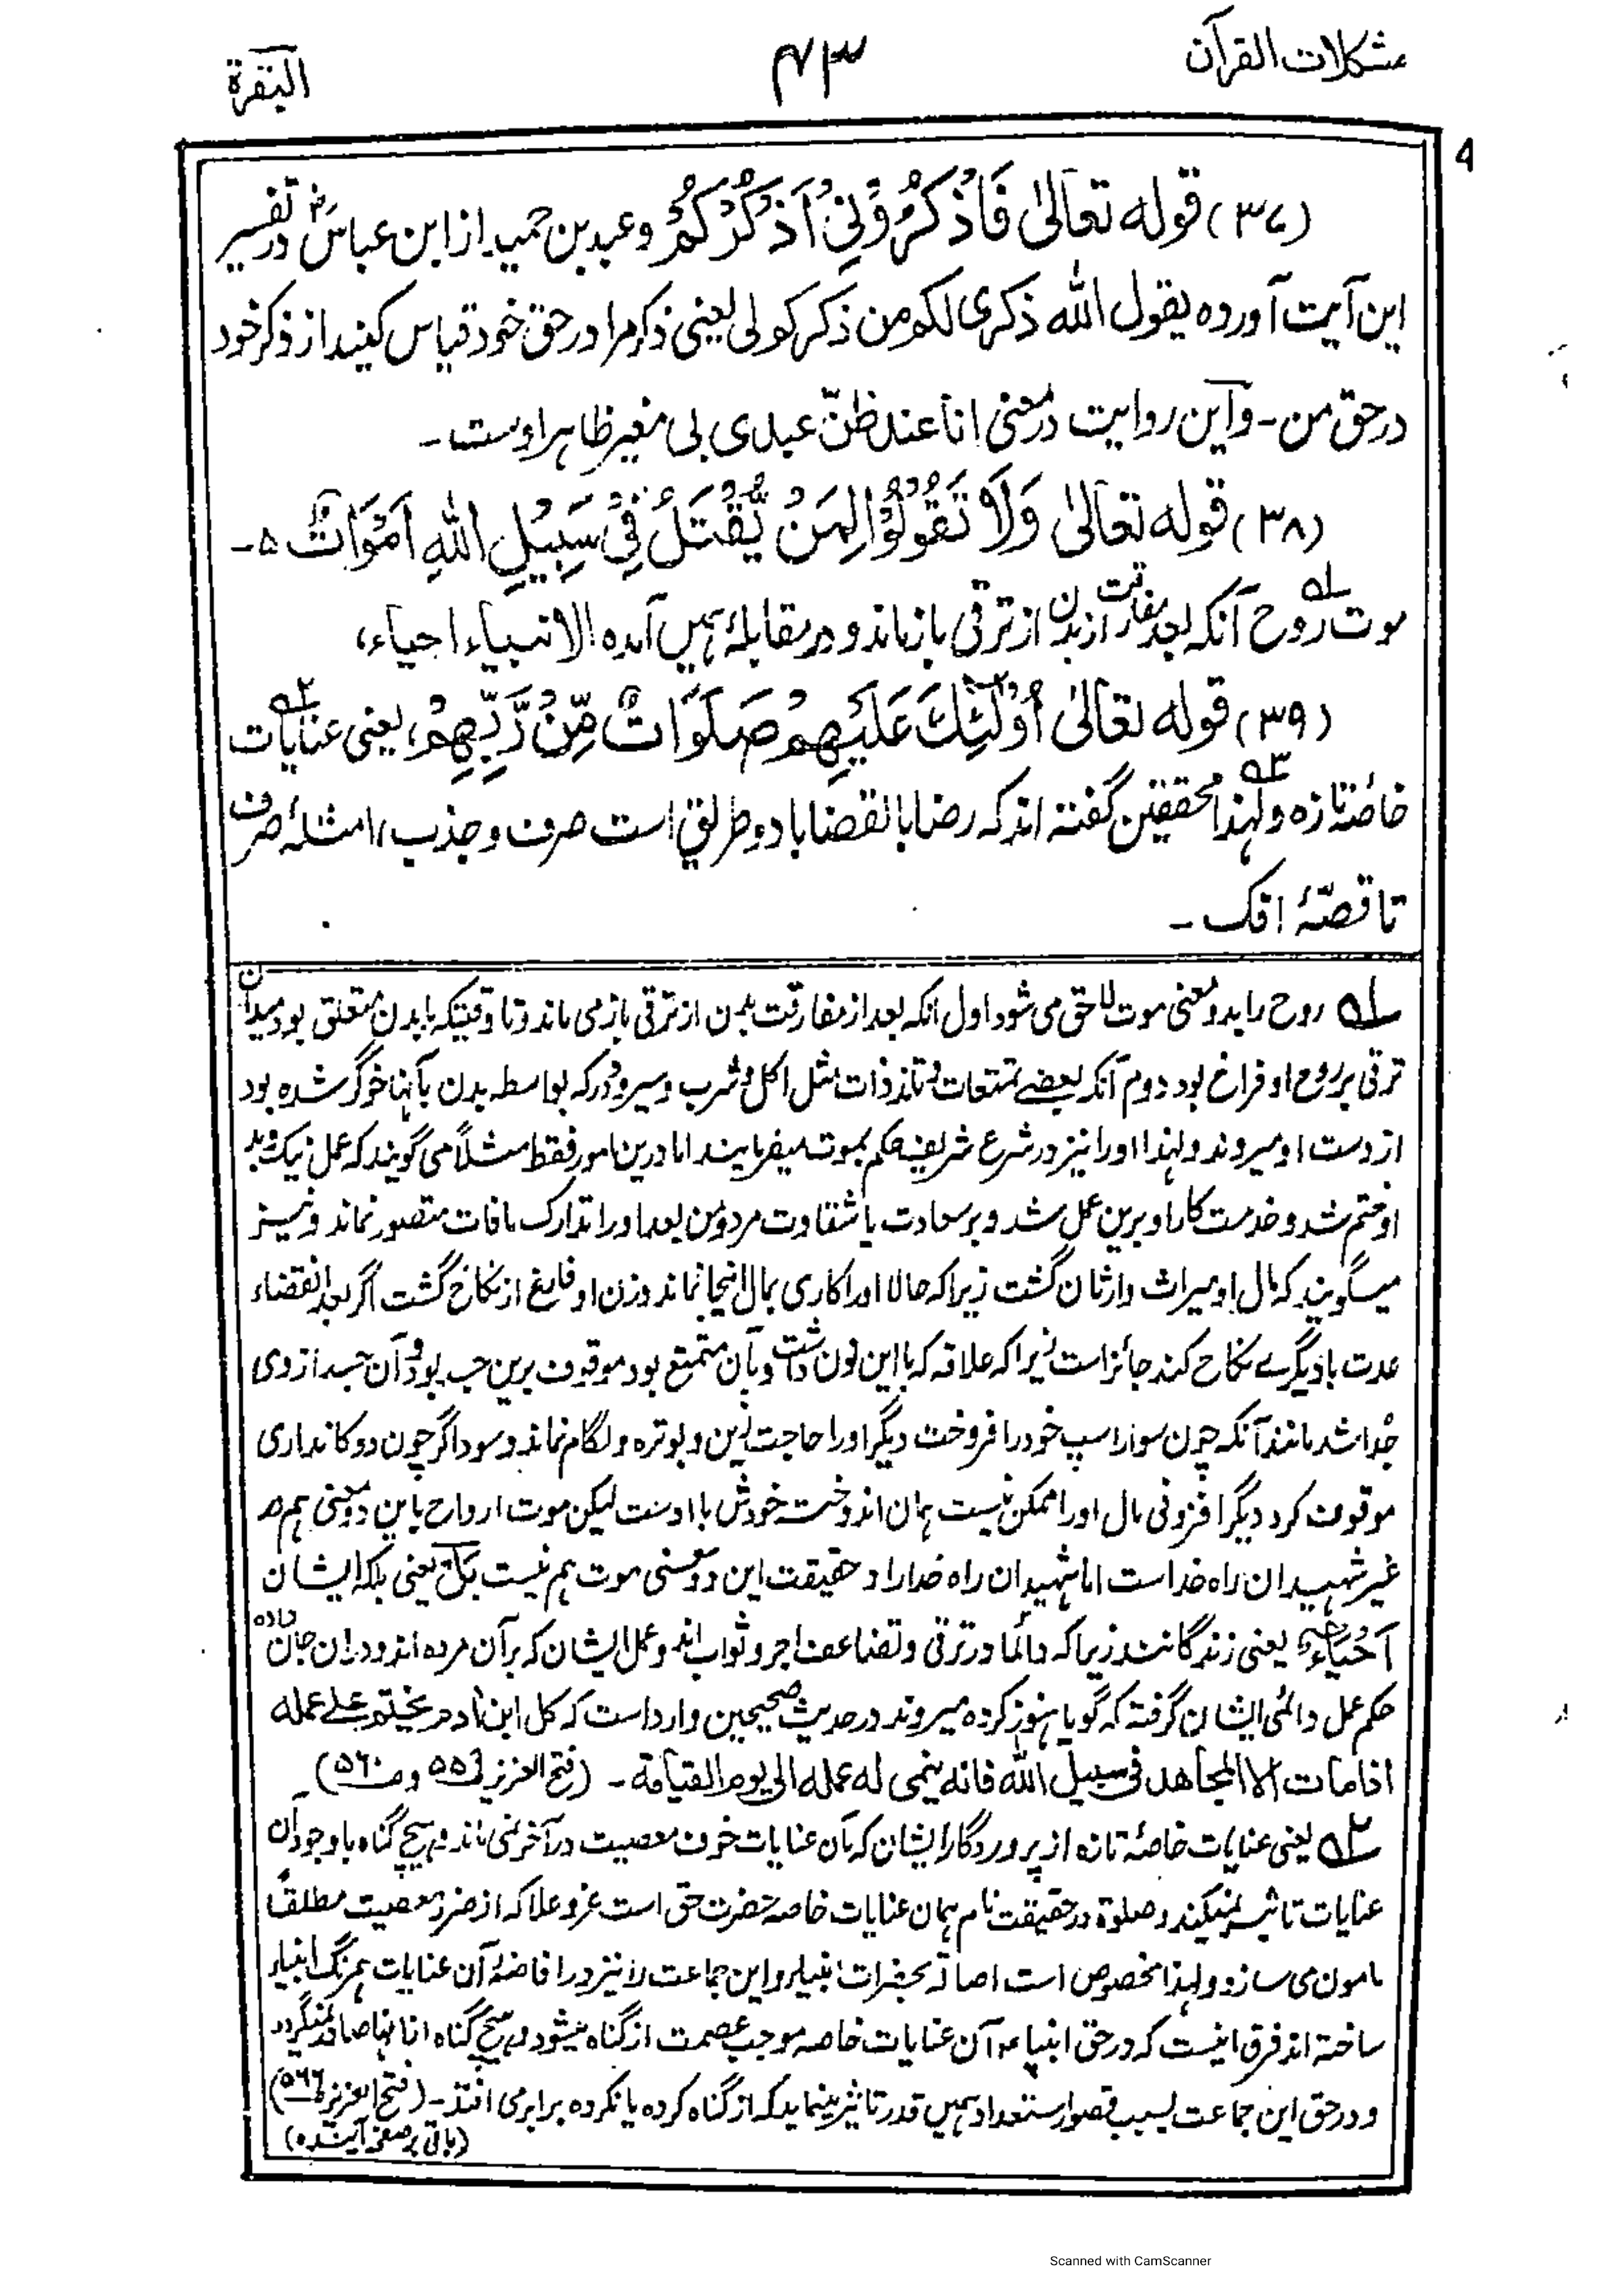 مشکلات القرآن
۴۳
البقرة
4
(۳۷) قوله تعالیٰ فَاذْكُرُوْنِیْ اَذْكُرْكُمْ وعبد بن حمید از ابن عباسؓ در تفسیر
این آیت آورده یقول اللہ ذکری لکم من ذکرکم لی یعنی ذکر مرا در حق خود قیاس کنید از ذکر خود
در حق من ـ و این روایت در معنی انا عند ظنّ عبدی بی مغیر ظاهر اوست ـ
(۳۸) قوله تعالیٰ وَلَا تَقُوْلُوْا لِمَنْ يُّقْتَلُ فِیْ سَبِيْلِ اللهِ اَمْوَاتٌ ۵ ـ
موت روح ۱ آنکه بعد مفارقت از بدن از ترقی باز ماند و در مقابلۂ همیں آمده الانبیاء احیاء،
(۳۹) قوله تعالیٰ اُولٰٓئِكَ عَلَيْهِمْ صَلَوَاتٌ مِّنْ رَّبِّهِمْ، یعنی عنایات ۲
خاصۂ تازه ولهذا ۳ محققین گفته اند که رضا بالقضا با دو طریق است صرف و جذب، امثلۂ صرف
تا قصّۂ افک ـ
۱ روح را بدو معنی موت لاحق می شود اول انکه بعد از مفارقت بدن از ترقی باز می ماند و تا وقتیکه با بدن متعلق بود میدان
ترقی بر روح او فراغ بود دوم آنکه بعضے تمتعات و تلذذات مثل اکل و شرب و سیر و دور که بواسطه بدن بآنها خوگر شده بود
از دست او میروند ولهذا او را نیز در شرع شریف حکم بموت میفرمایند اما درین امور فقط مثلاً می گویند که عمل نیک و بد
او ختم شد و خدمت کار او برین عمل شد و بر سعادت یا شقاوت مرد و من بعد او را تدارک مافات متصور نماند و نیز
میگویند که مال او میراث وارثان گشت زیرا که حالا او را کاری بمال اینجا نماند و زن او فارغ از نکاح گشت اگر بعد انقضاء
عدت با دیگرے نکاح کند جائز است زیرا که علاقه که با این لون داشت و بآن متمتع بود موقوف برین جسد بود و آن جسد از وی
جُدا شد مانند آنکه چون سوار اسپ خود را فروخت دیگر او را حاجت زین و بوتره و لگام نماند و سوداگر چون دوکانداری
موقوف کرد دیگر افزونی مال او را ممکن نیست همان اندوخت خودش با اوست لیکن موت ارواح باین دو معنی هم در
غیر شهیدان راه خداست اما شهیدان راه خدا را در حقیقت این دو معنی موت هم نیست بَلْ یعنی بلکه ایشان
اَحْيَاءٌ یعنی زندگانند زیرا که دائما در ترقی و تضاعف اجر و ثواب اند و عمل ایشان که بر آن مرده اند و دران جان داده
حکم عمل دائمی ایشان گرفته که گویا هنوز کرده میروند در حدیث صحیحین وارد است که کل ابن آدم یختم علی عمله
اذا مات الا المجاهد فی سبیل اللہ فانه ینمی له عمله الی یوم القیامة ـ (فتح العزیز ص ۵۵۹ و ص ۵۶۰)
۲ یعنی عنایات خاصۂ تازه از پروردگار ایشان که بآن عنایات خوف معصیت در آخر نمی ماند و هیچ گناه با وجود آن
عنایات تاثیر نمیکند و صلوٰة در حقیقت نام همان عنایات خاصه حضرت حق است عز و علا که از ضرر معصیت مطلقًا
مامون می سازد و لهذا مخصوص است اصالةً بحضرات انبیاء و این جماعت را نیز در افاضۂ آن عنایات همرنگ انبیاء
ساخته اند فرق اینست که در حق انبیاء آن عنایات خاصه موجب عصمت از گناه میشود و هیچ گناه از آنها صادر نمیگردد
و در حق این جماعت بسبب قصور استعداد همیں قدر تاثیر مینماید که از گناه کرده یا نکرده برابر می افتد ـ (فتح العزیز ص ۵۶۶)
(باقی بر صفحۂ آینده)
Scanned with CamScanner